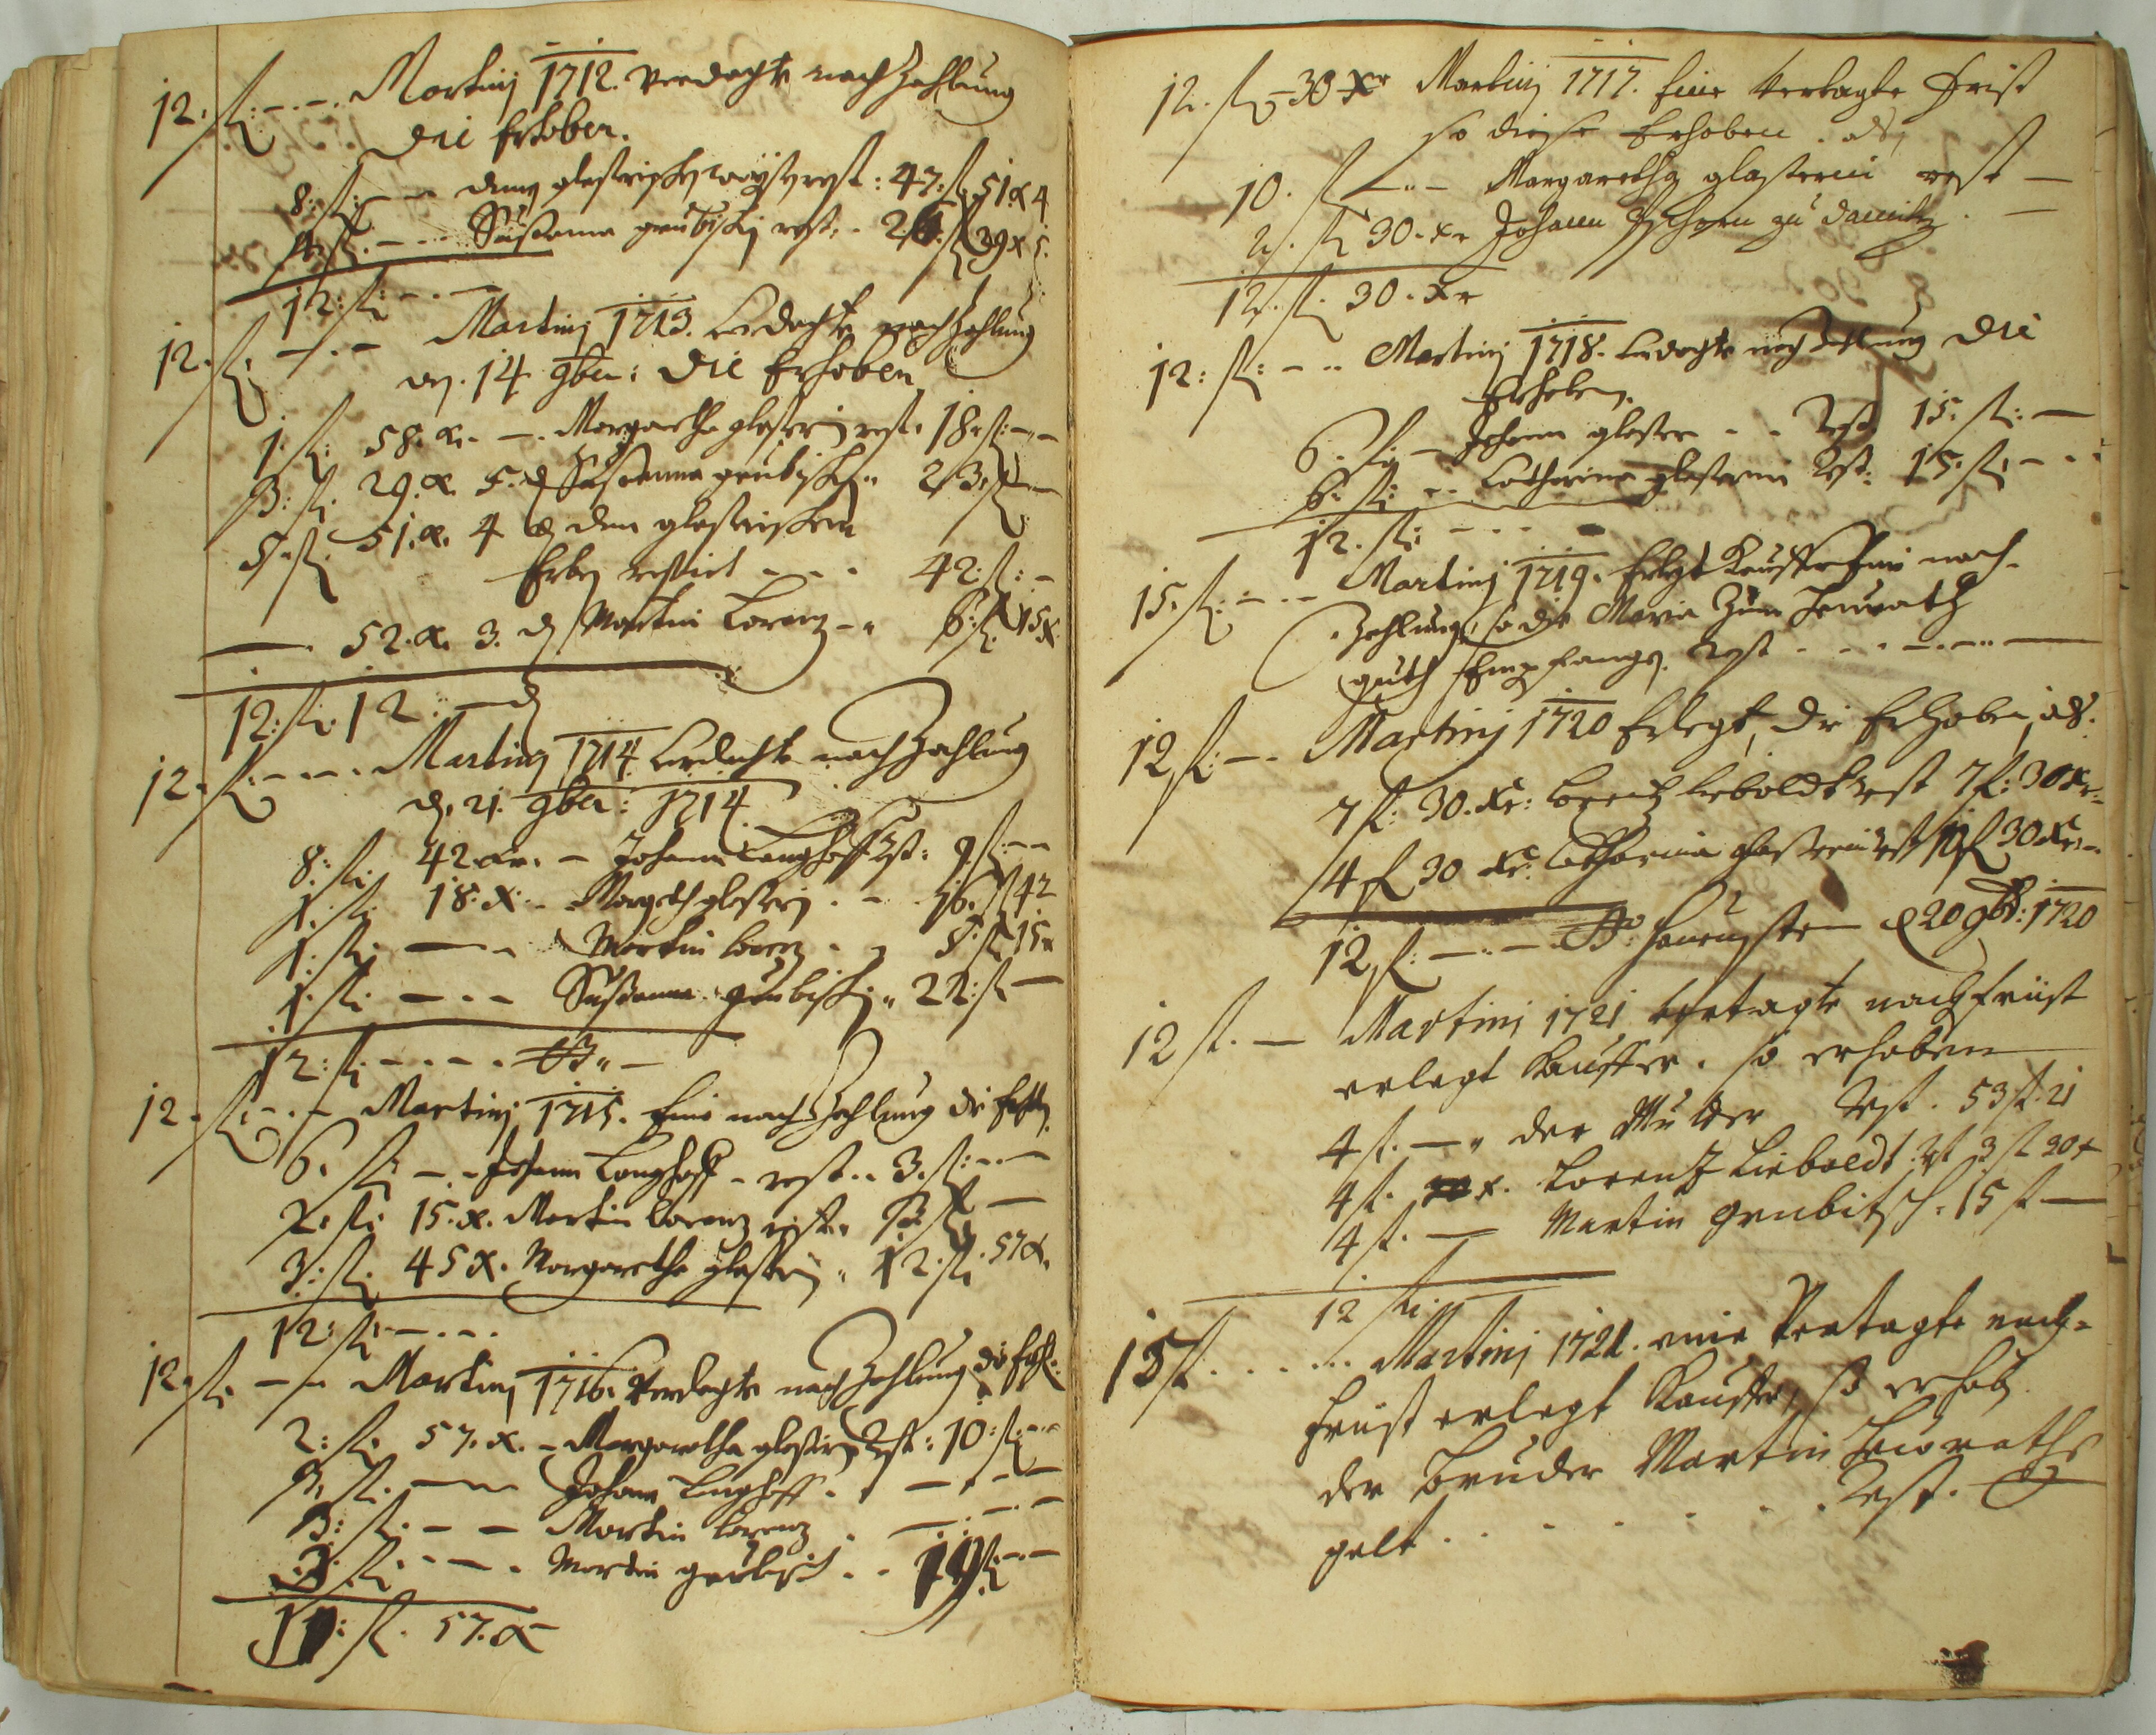 12. fl: - . - . Martinj 1712. Verdagte nachzahlung
die Erhoben.
8: fl: - - 47: fl 51 x 4
4: fl. - - - Susanna grubischj rest. - 26: fl 29 x 5.
12: fl: - . -
12. fl: - . - Martinj 1713. nachzahlung
14 9ber: Die Erhoben
1. fl: 58. x. - . Margaretha glaserj rest. 18. fl: - -
3: fl. 29. x. 5. d Susanna grubischj " 23. fl -
5. fl. 51. x. 4 d den glaserischen
Erben restiert - - - 42: fl: -
- . 52. x. 3. d Martin Lorenz - " 6: fl 15 x
12: fl. 12 " - d
12. fl: - - - . Martinj 1714 nachzahlung
d. 21. 9ber: 1714
8: fl: 42 xr. - Johann Langhoff rest: 9 fl: - -
1: fl. 18. x: - . glaserj . - . 16. fl 42
1: fl: - - Martin Lorenz - " 5: fl 15 x
1: fl: - . - Susanna grubischj " 22: fl -
12: fl: - - - -
12. fl: - . - Martinj 1715. Eine nachzahlung die
6. fl: - . - Johann Langhoff - rest. . 3. fl: - . -
2: fl: 15. x. Martin Lorenz rest " 3: fl -
3: fl. 45 x. Margaretha glaserj " 12. fl. 57 x.
12: fl: - . - . .
12. fl. - - Martinj 1716. Verdagte nachzahlung die
2: fl. 57. x. - Margaretha glaserj rest: 10: fl: - -
3. fl. - - Johann Langhoff . - - . - -
3: fl. - - Martin Lorenz . - . - . -
3 fl. - - - . Martin grubisch . . 19 fl: - -
11: fl. 57. x
12. fl - 30 xr Martinj 1717. Eine Vertagte Frist
so diese Erhoben. als,
10. fl - " - Margaretha glaserin rest -
2. fl 30. xr Johann zu . -
12. fl. 30. xr
12: fl: - . . Martinj 1718. nachzahlung Die
Erhoben.
6. fl: - Johann glaser - - Rest. 15. fl: -
6. fl: - . Catharina glaserin Rest: 15. fl: - . .
12. fl: - - -
15. fl: - . - Martinj 1719. Erlegt Kauffer Eine nach-
zahlung, so die Maria zum Heurath
guth Empfangen. Rest - . - . - . -
12 fl: - . Martinj 1720 Erlegt, die Erhoben, als.
7 fl: 30. Xr: Lorentz Lieboldt rest 7 fl: 30 xr:
4 fl 30 Xr. Catharina glaserin rest 10 fl 30 Xr: -
12 fl: - . . - d 20 9br: 1720
12 fl. - Martinj 1721 vertagte nachfrist
erlegt Kauffer. so erhoben
4 fl. - " der Mutter Rest. 53 fl. 21
4 fl. x. Lorentz Lieboldt. Rst 3 fl 30 x
4 fl. - Martin grubitsch. 15 fl -
12 fl:
15 fl. . . . . . Martinj 1722. eine Vertagte nach-
frist erlegt Kauffer, so erhob
der Bruder Martin Heuraths
gelt . . . . . . Rest.